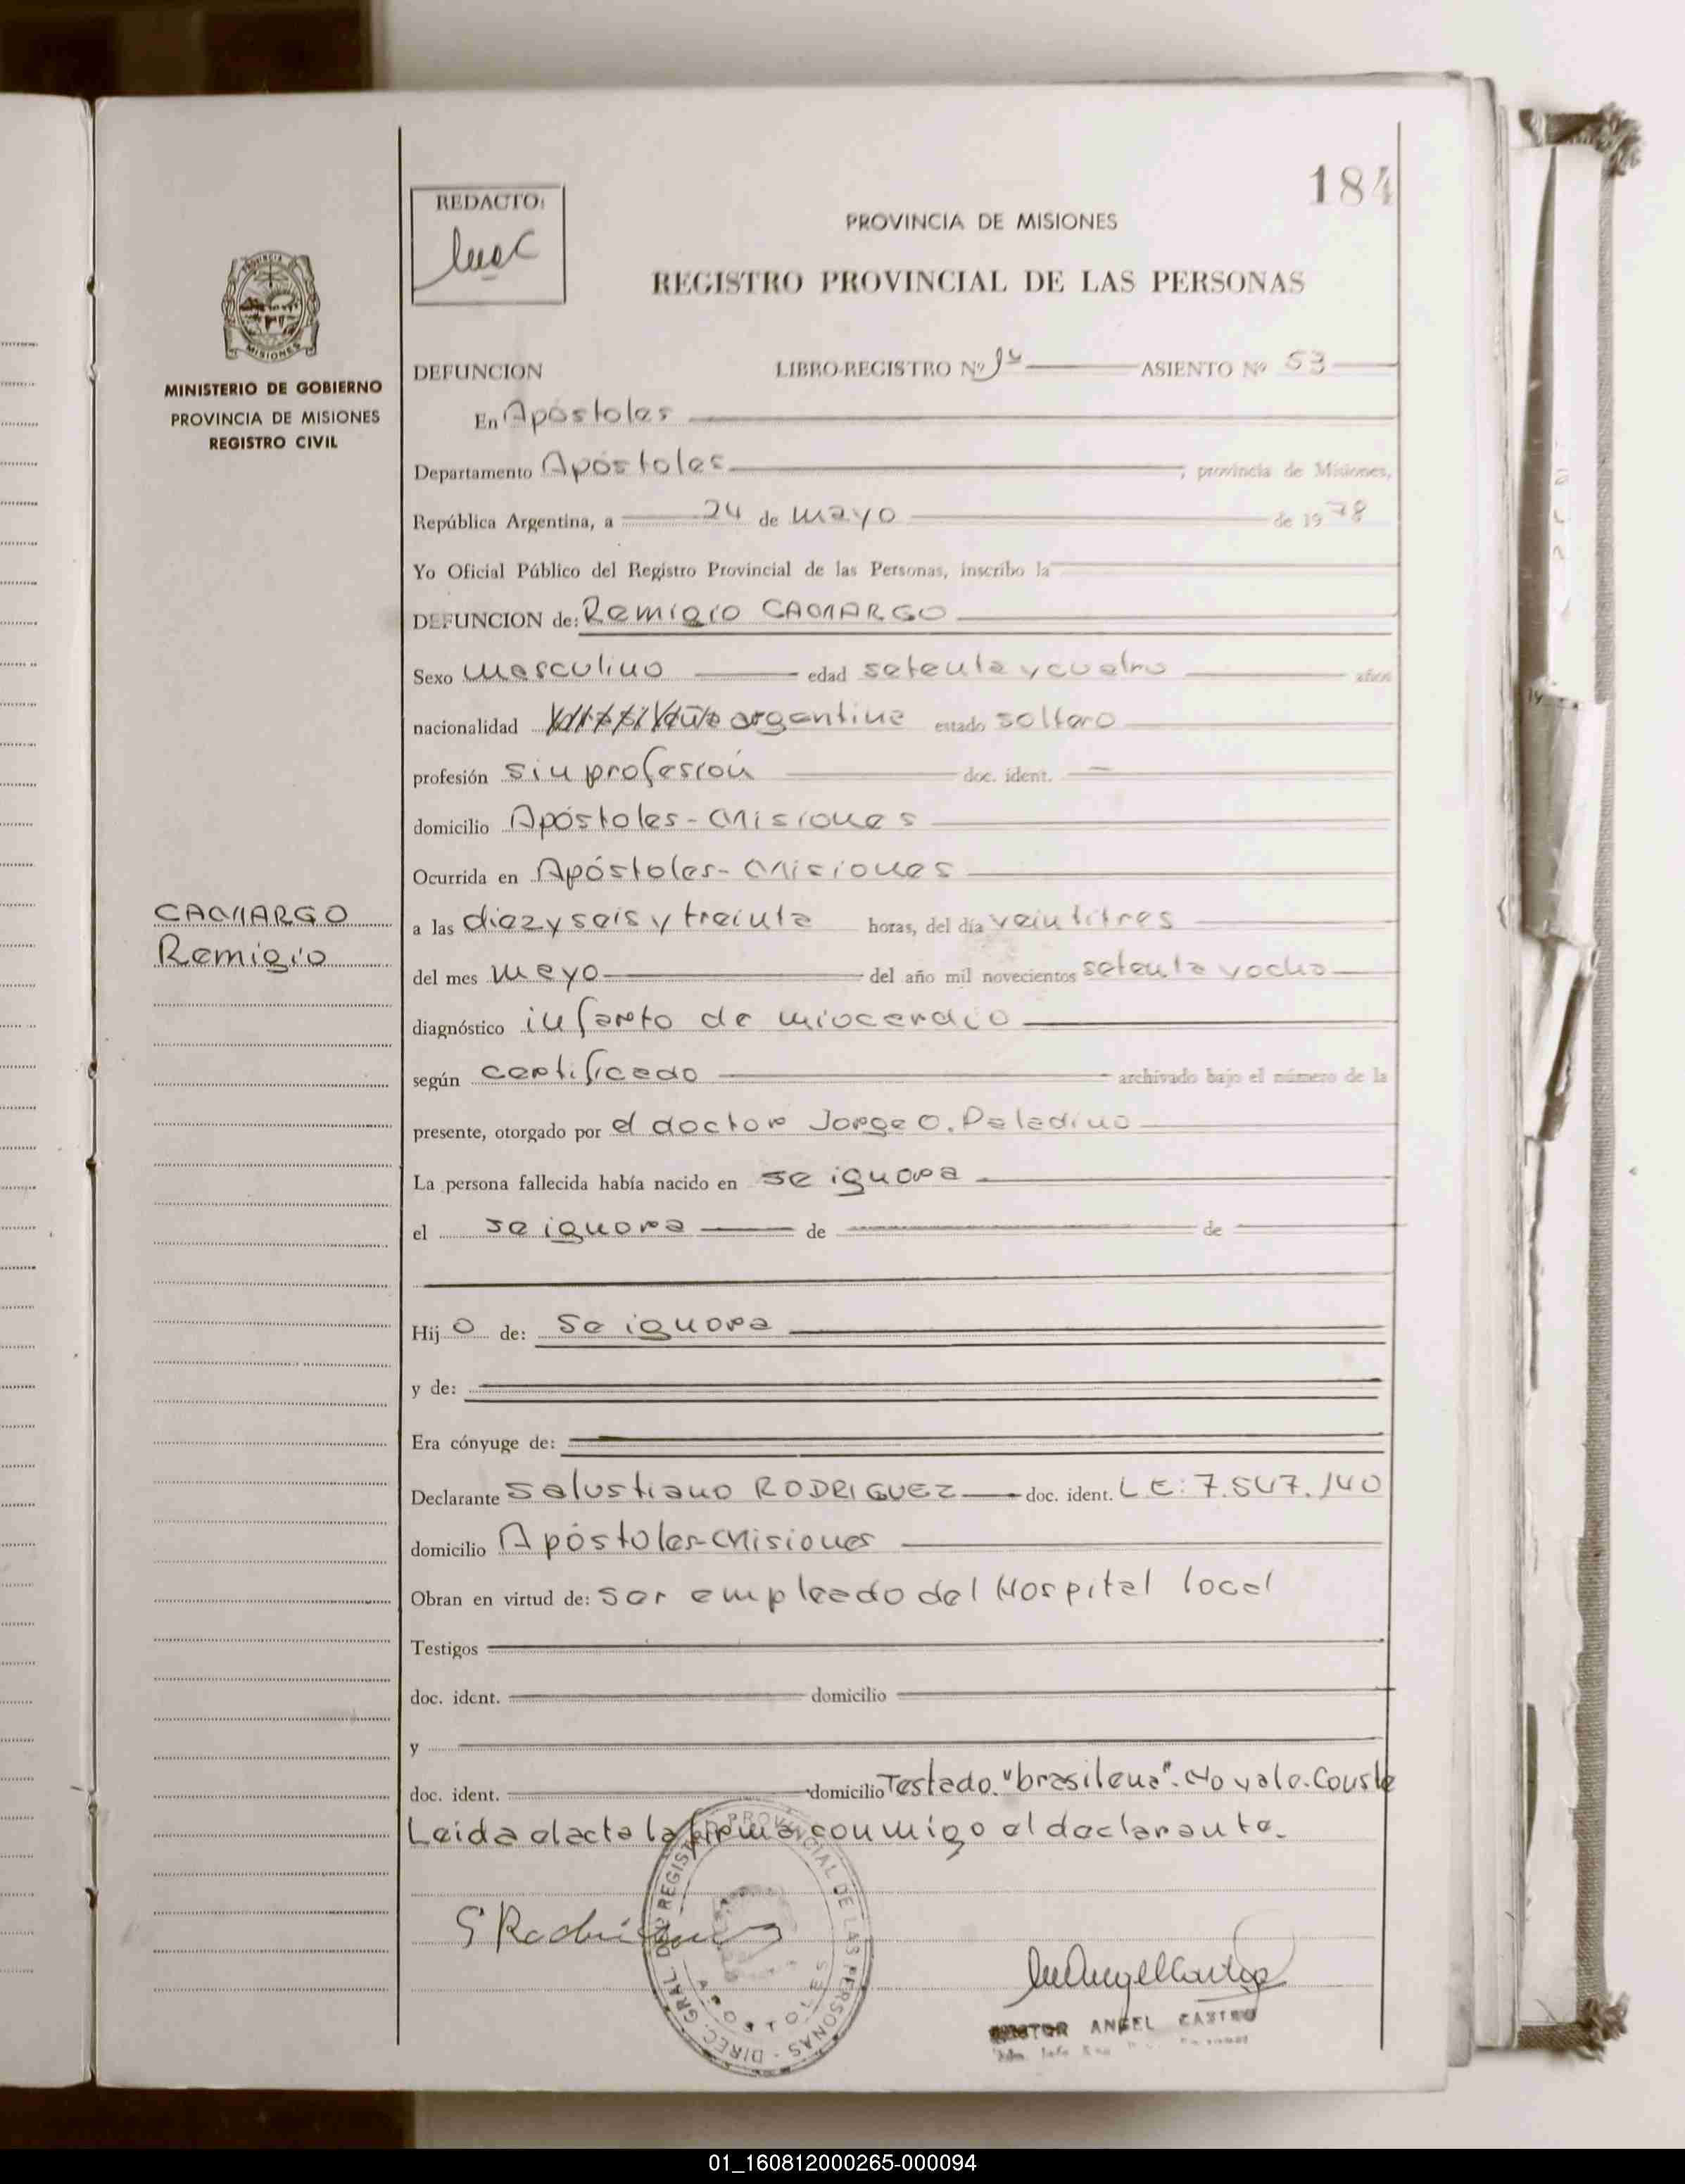 184
REDACTO:
PROVINCIA DE MISIONES
REGISTRO PROVINCIAL DE LAS PERSONAS
PROVINCIA
MISIONES
MINISTERIO DE GOBIERNO
PROVINCIA DE MISIONES
REGISTRO CIVIL
DEFUNCION LIBRO-REGISTRO Nº 1º ASIENTO Nº 53
En Apóstoles
Departamento Apóstoles, provincia de Misiones,
República Argentina, a 24 de mayo de 1978
Yo Oficial Público del Registro Provincial de las Personas, inscribo la
DEFUNCION de: Remigio CAMARGO
Sexo masculino edad setenta y cuatro años
nacionalidad brasileña argentina estado soltero
profesión sin profesión doc. ident. —
domicilio Apóstoles - Misiones
Ocurrida en Apóstoles - Misiones
CAMARGO
Remigio
a las diez y seis y treinta horas, del día veintitres
del mes mayo del año mil novecientos setenta y ocho
diagnóstico infarto de miocardio
según certificado archivado bajo el número de la
presente, otorgado por el doctor Jorge O. Paladino
La persona fallecida había nacido en se ignora
el se ignora de de
Hijo de: Se ignora
y de:
Era cónyuge de:
Declarante Salustiano RODRIGUEZ doc. ident. L E: 7.547.140
domicilio Apóstoles - Misiones
Obran en virtud de: Ser empleado del Hospital local
Testigos
doc. ident. domicilio
y
doc. ident. domicilio Testado. "brasilena". No vale. Conste
Leida el acta la firma conmigo el declarante.
S Rodriguez
DIREC. GRAL. DEL REGISTRO PROVINCIAL DE LAS PERSONAS
APOSTOLES
ANGEL CASTRO
01_160812000265-000094